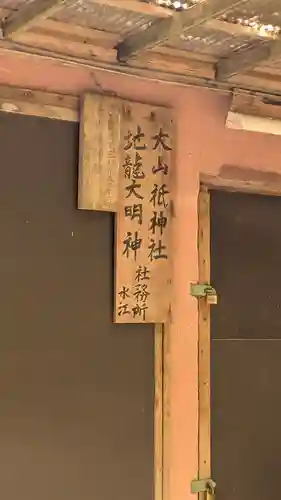 大山祇神社
地龍大明神
社務所
水江